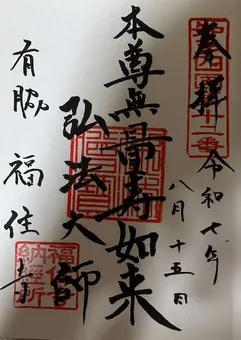 奉拝
知多四国十二番
令和七年
八月十五日
本尊無量寿如来
弘法大師
有脇 福住寺
福住寺
納経所